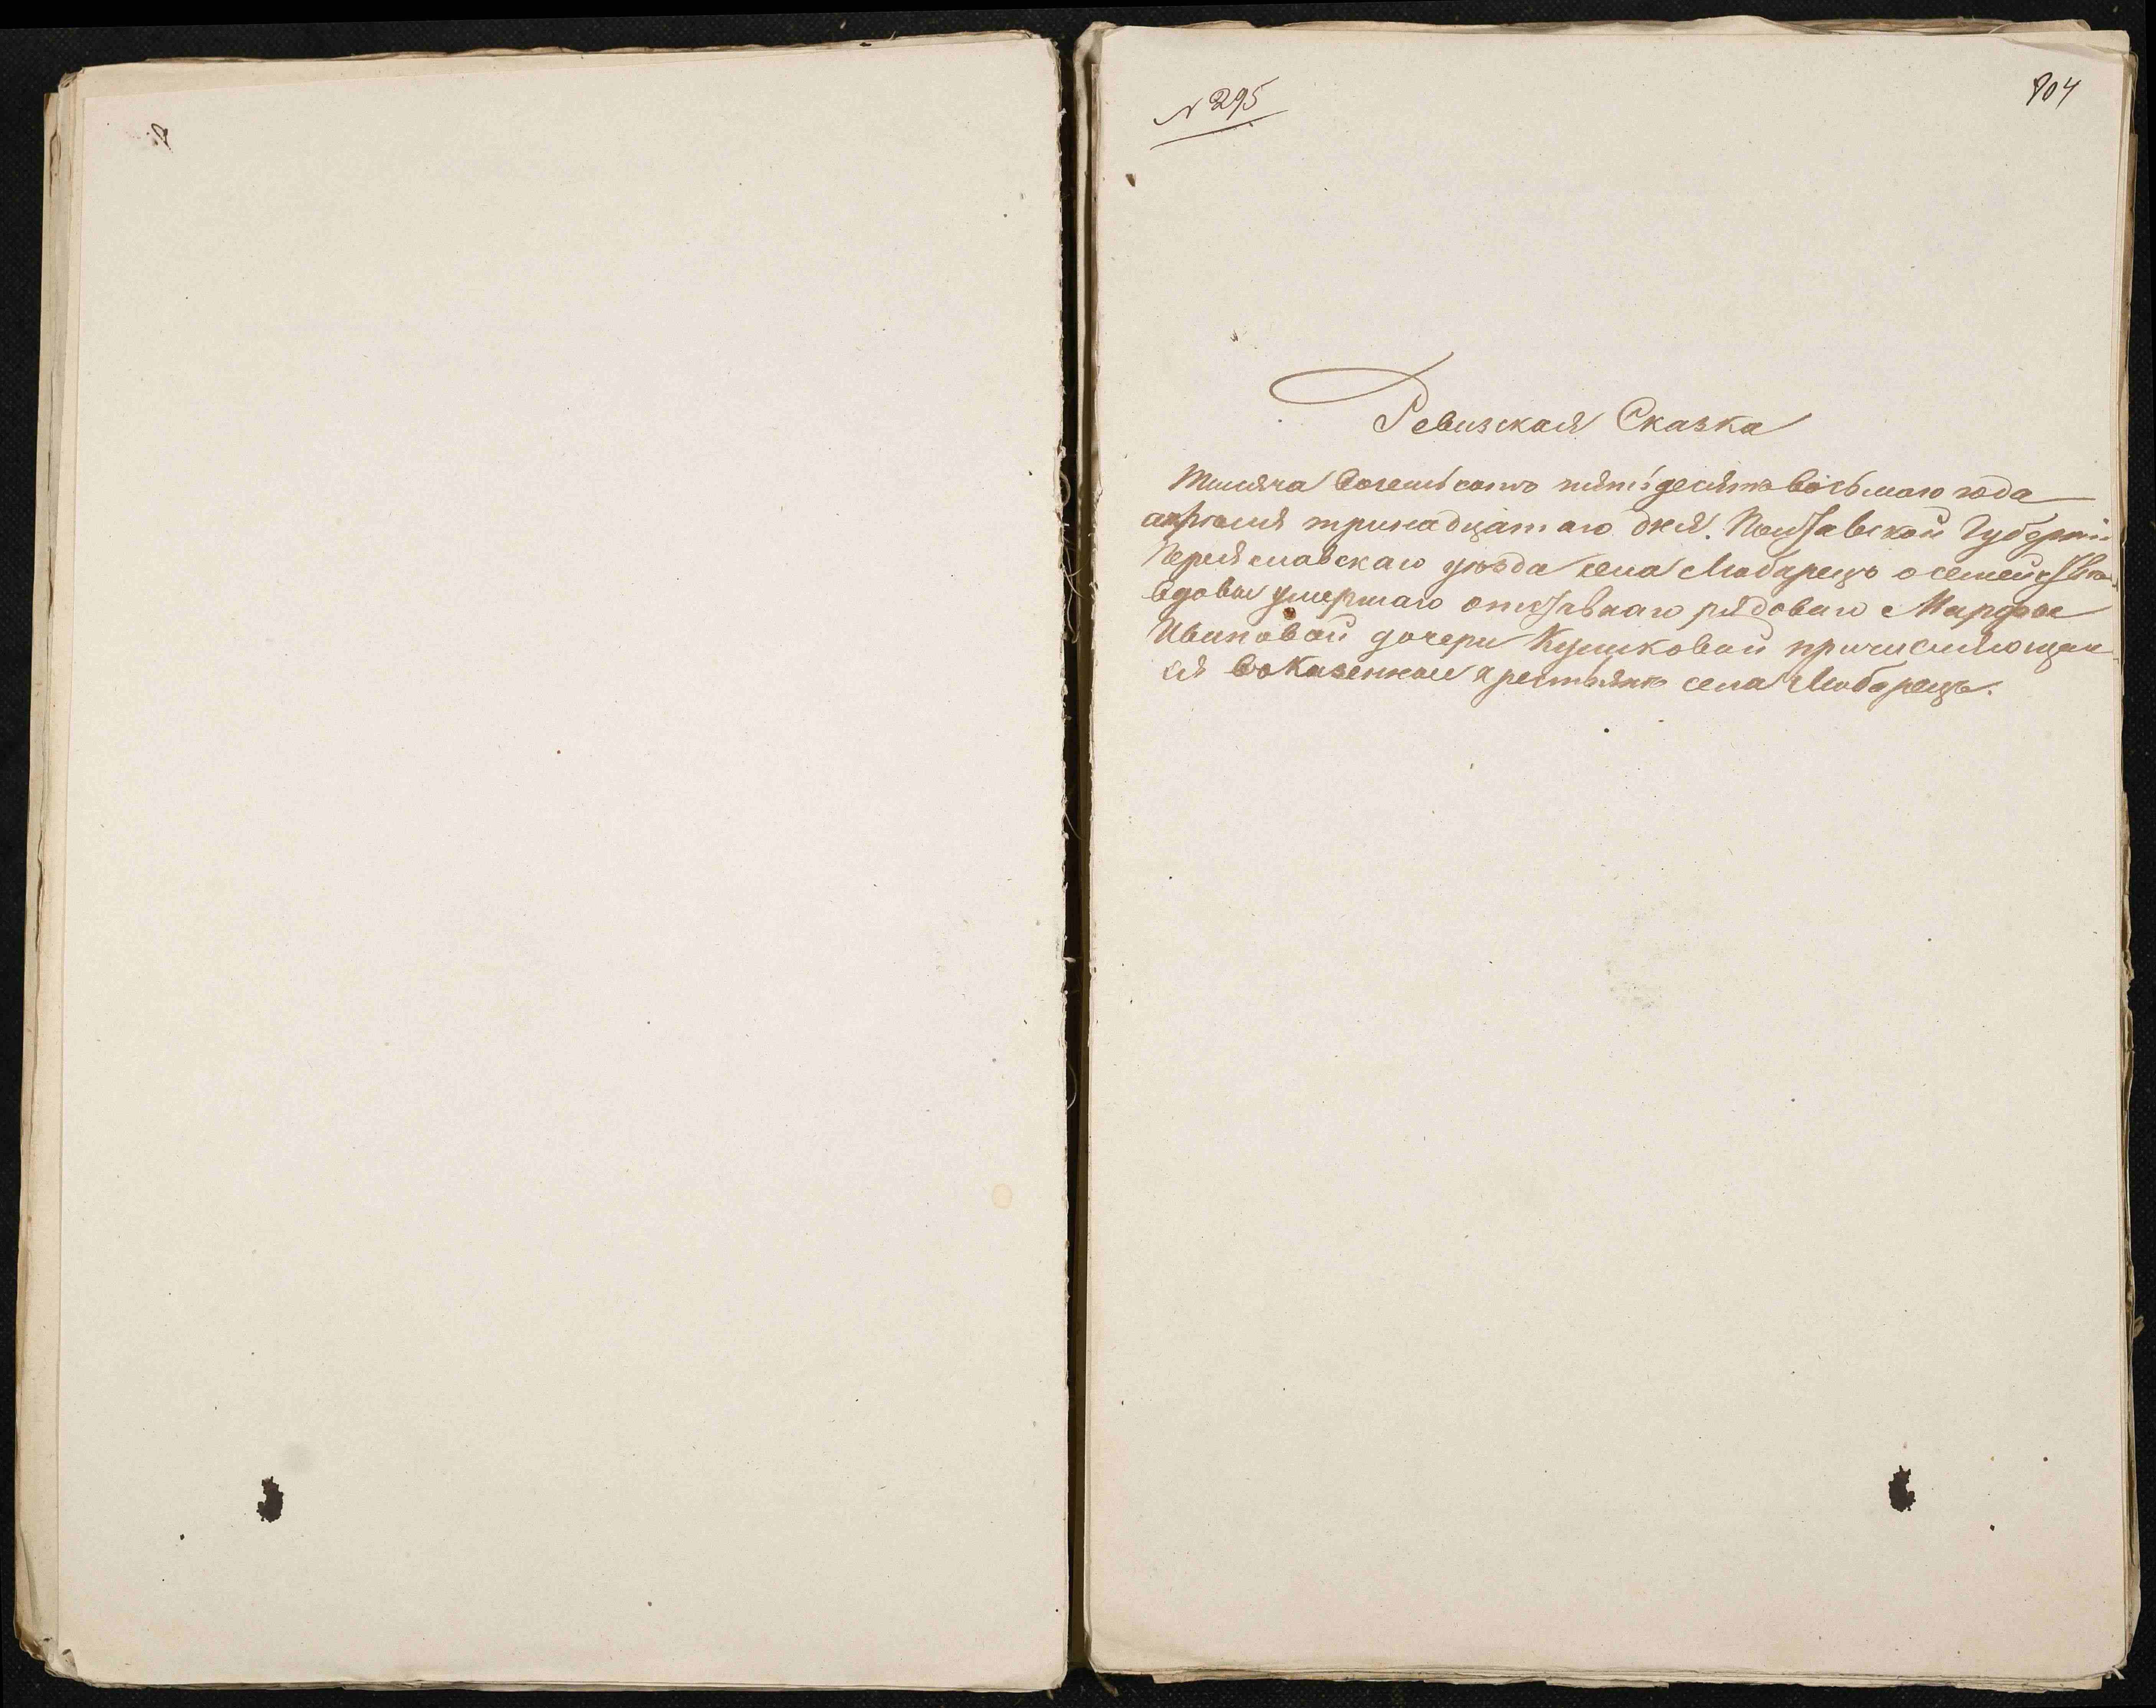 N 295
804
Ревизская Сказка
Тысяча восемьсотъ пятьдесятъ восьмаго года
апрѣля тринадцатаго дня. Полтавской Губерніи
Переяславскаго уѣзда села Любарецъ о семействѣ
вдовы умершаго отставнаго рядоваго Марфы
Ивановой дочери причисляющей
ся въ казенныя крестьяне села Любарецъ.